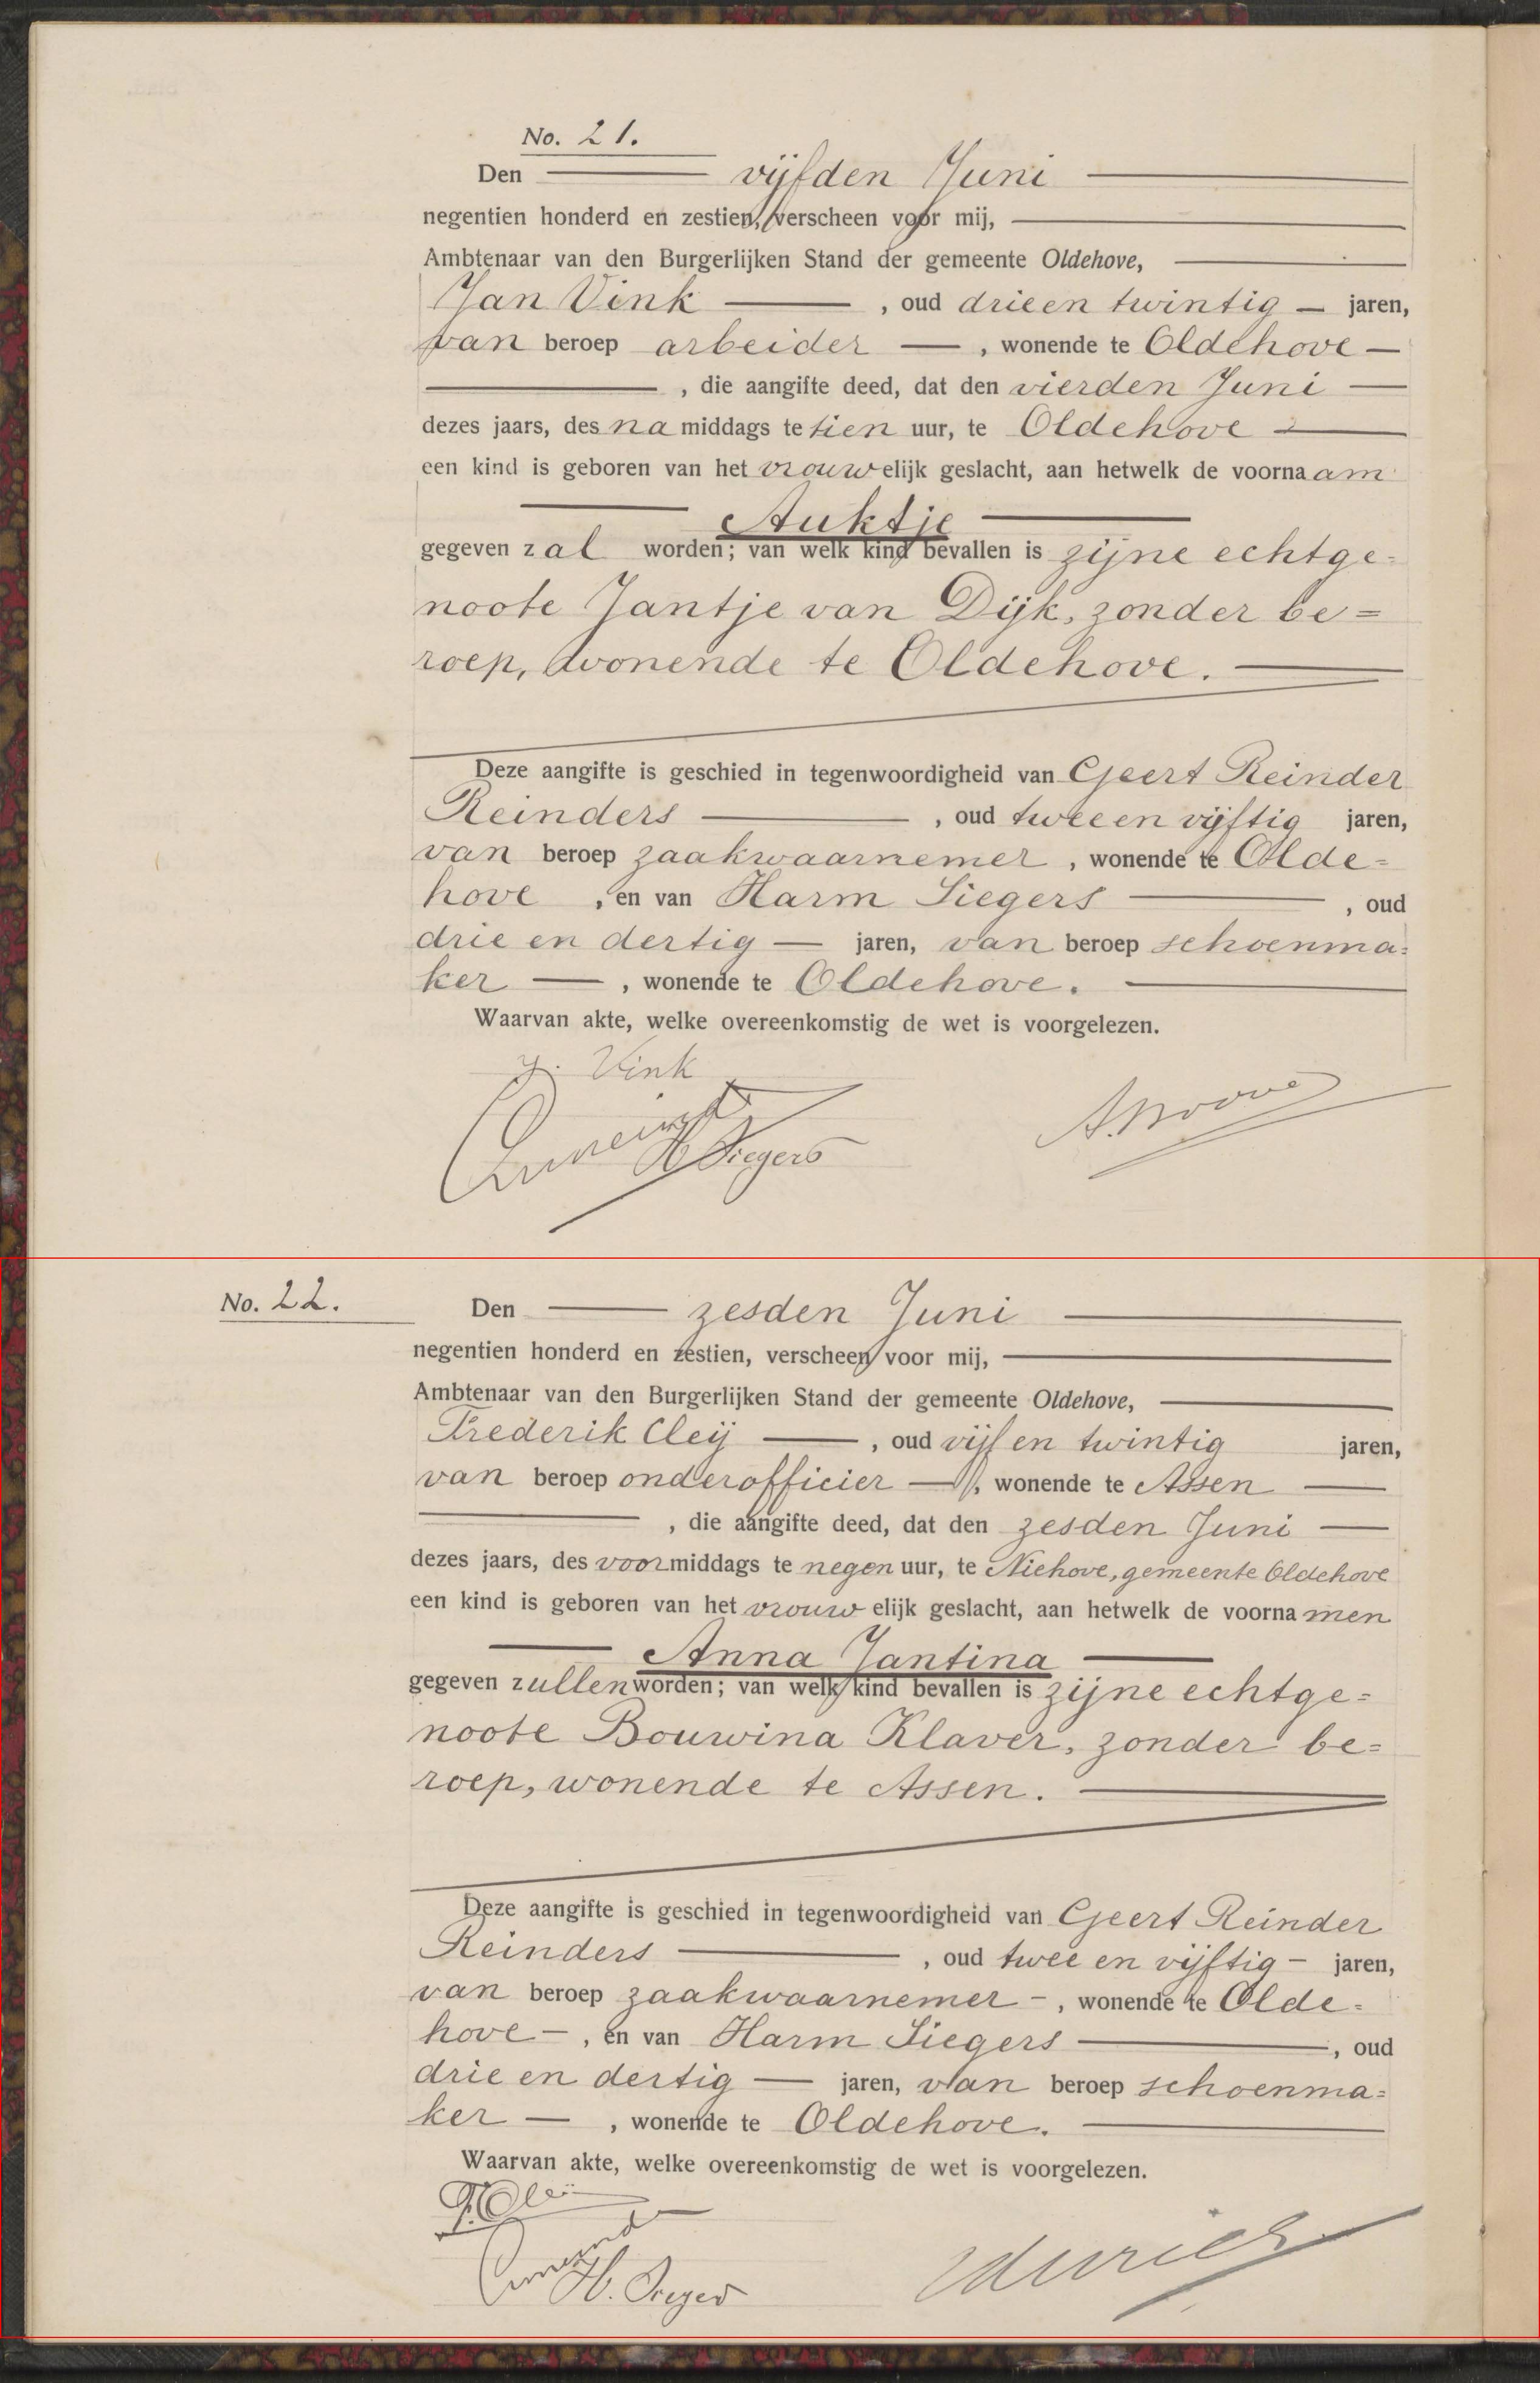 No. 21.
Den vijfden Juni
negentien honderd en zestien, verscheen voor mij,
Ambtenaar van den Burgerlijken Stand der gemeente Oldehove,
Jan Vink, oud drieen twintig jaren,
van beroep arbeider, wonende te Oldehove
, die aangifte deed, dat den vierden Juni
dezes jaars, des namiddags te tien uur, te Oldehove
een kind is geboren van het vrouwelijk geslacht, aan hetwelk de voornaam
Auktje
gegeven zal worden; van welk kind bevallen is zijne echtge=
noote Jantje van Dijk, zonder be=
roep, wonende te Oldehove.
Deze aangifte is geschied in tegenwoordigheid van Geert Reinder
Reinders, oud tweeen vijftig jaren,
van beroep zaakwaarnemer, wonende te Olde=
hove, en van Harm Siegers, oud
drie en dertig jaren, van beroep schoenma=
ker, wonende te Oldehove.
Waarvan akte, welke overeenkomstig de wet is voorgelezen.
J. Vink
H Siegers
No. 22.
Den zesden Juni
negentien honderd en zestien, verscheen voor mij,
Ambtenaar van den Burgerlijken Stand der gemeente Oldehove,
Frederik Cleij, oud vijf en twintig jaren,
van beroep onderofficier, wonende te Assen
, die aangifte deed, dat den zesden Juni
dezes jaars, des voormiddags te negen uur, te Niehove, gemeente Oldehove
een kind is geboren van het vrouwelijk geslacht, aan hetwelk de voornamen
Anna Jantina
gegeven zullen worden; van welk kind bevallen is zijne echtge=
noote Bouwina Klaver, zonder be=
roep, wonende te Assen.
Deze aangifte is geschied in tegenwoordigheid van Geert Reinder
Reinders, oud twee en vijftig jaren,
van beroep zaakwaarnemer, wonende te Olde=
hove, en van Harm Siegers, oud
drie en dertig jaren, van beroep schoenma=
ker, wonende te Oldehove.
Waarvan akte, welke overeenkomstig de wet is voorgelezen.
F. Cleij
H. Siegers